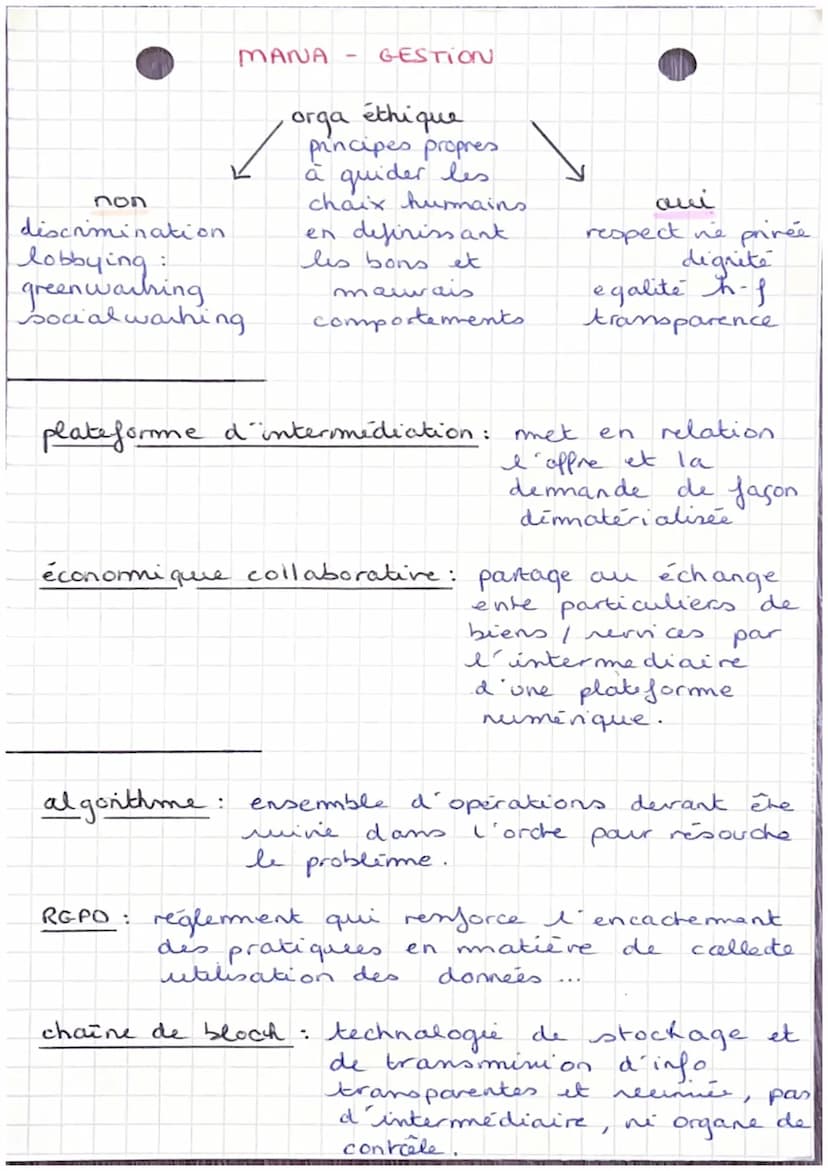 MANA - GESTION
orga éthique
principes propres
à guider les
choix humains
en définissant
les bons et
mauvais
comportements
non
discrimination
lobbying :
greenwashing
socialwashing
oui
respect vie privée
dignité
egalité h-f
transparence
plateforme d'intermédiation : met en relation
l'offre et la
demande de façon
dématérialisée
économique collaborative : partage ou échange
entre particuliers de
biens / services par
l'intermediaire
d'une plateforme
numérique.
algorithme : ensemble d'opérations devant être
suivie dans l'ordre pour résoudre
le problème.
RGPD : réglement qui renforce l'encadrement
des pratiques en matière de collecte
utilisation des données ...
chaîne de block : technologie de stockage et
de transmission d'info
transparentes et , pas
d'intermédiaire, ni organe de
contrôle.